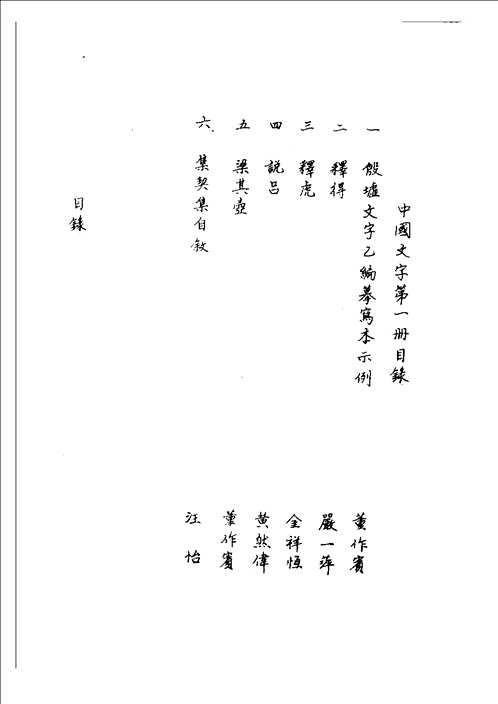 中國文字第一册目錄
一 殷墟文字乙編摹寫本示例 董作賓
二 釋得 嚴一萍
三 釋虎 金祥恒
四 說吕 黄然偉
五 梁其壺 董作賓
六 集契集自敘 汪怡
目錄